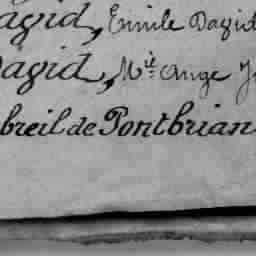 agid, Emile Dagid
Dagid, Mie Ange J
breil de Pontbrian